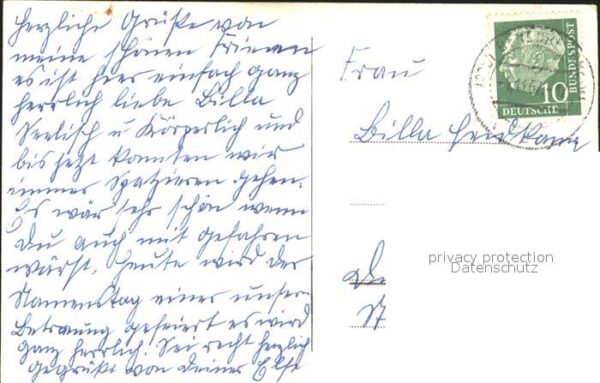 Herzliche Grüße von
meine schönen Ferien
es ist hier einfach ganz
herrlich liebe Billa
Seelisch u Körperlich und
bis jetzt konnten wir
immer Spatzieren gehen.
Es wär sehr schön wenn
Du auch mit gefahren
wärst. heute wird der
Namenstag einer unsern
Betreuung gefeiert es wird
ganz herrlich. Sei recht herzlich
gegrüßt von deiner Else
Frau
Billa
10
DEUTSCHE
BUNDESPOST
privacy protection
Datenschutz